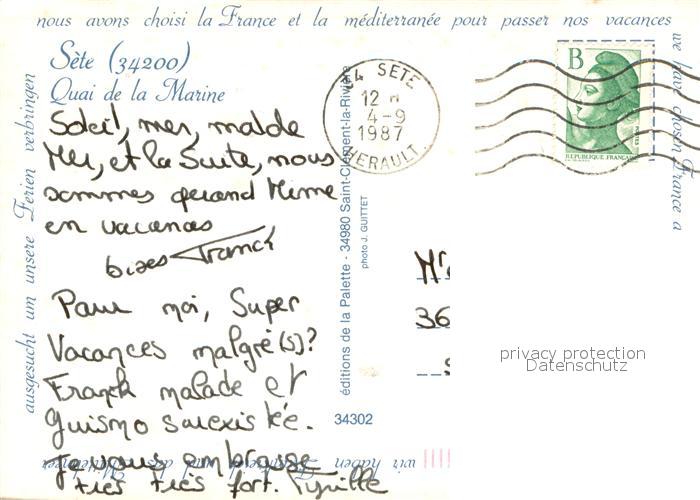 nous avons choisi la France et la méditerranée pour passer nos vacances
we have chosen France a
Sète (34200)
Quai de la Marine
Soleil, mer, mal de
Mer, et la Suite, nous
sommes quand Meme
en vacances
bises Franck
Pour moi, Super
Vacances malgré(s)?
Franck malade et
Guismo surexistée.
Je vous embrasse
très très fort.
34 SETE
12 H
4-9
1987
HERAULT
B
REPUBLIQUE FRANÇAISE
éditions de la Palette - 34980 Saint-Clément-la-Rivière
photo J. GUITTET
34302
36
privacy protection
Datenschutz
wir haben
ausgesucht um unsere Ferien verbringen